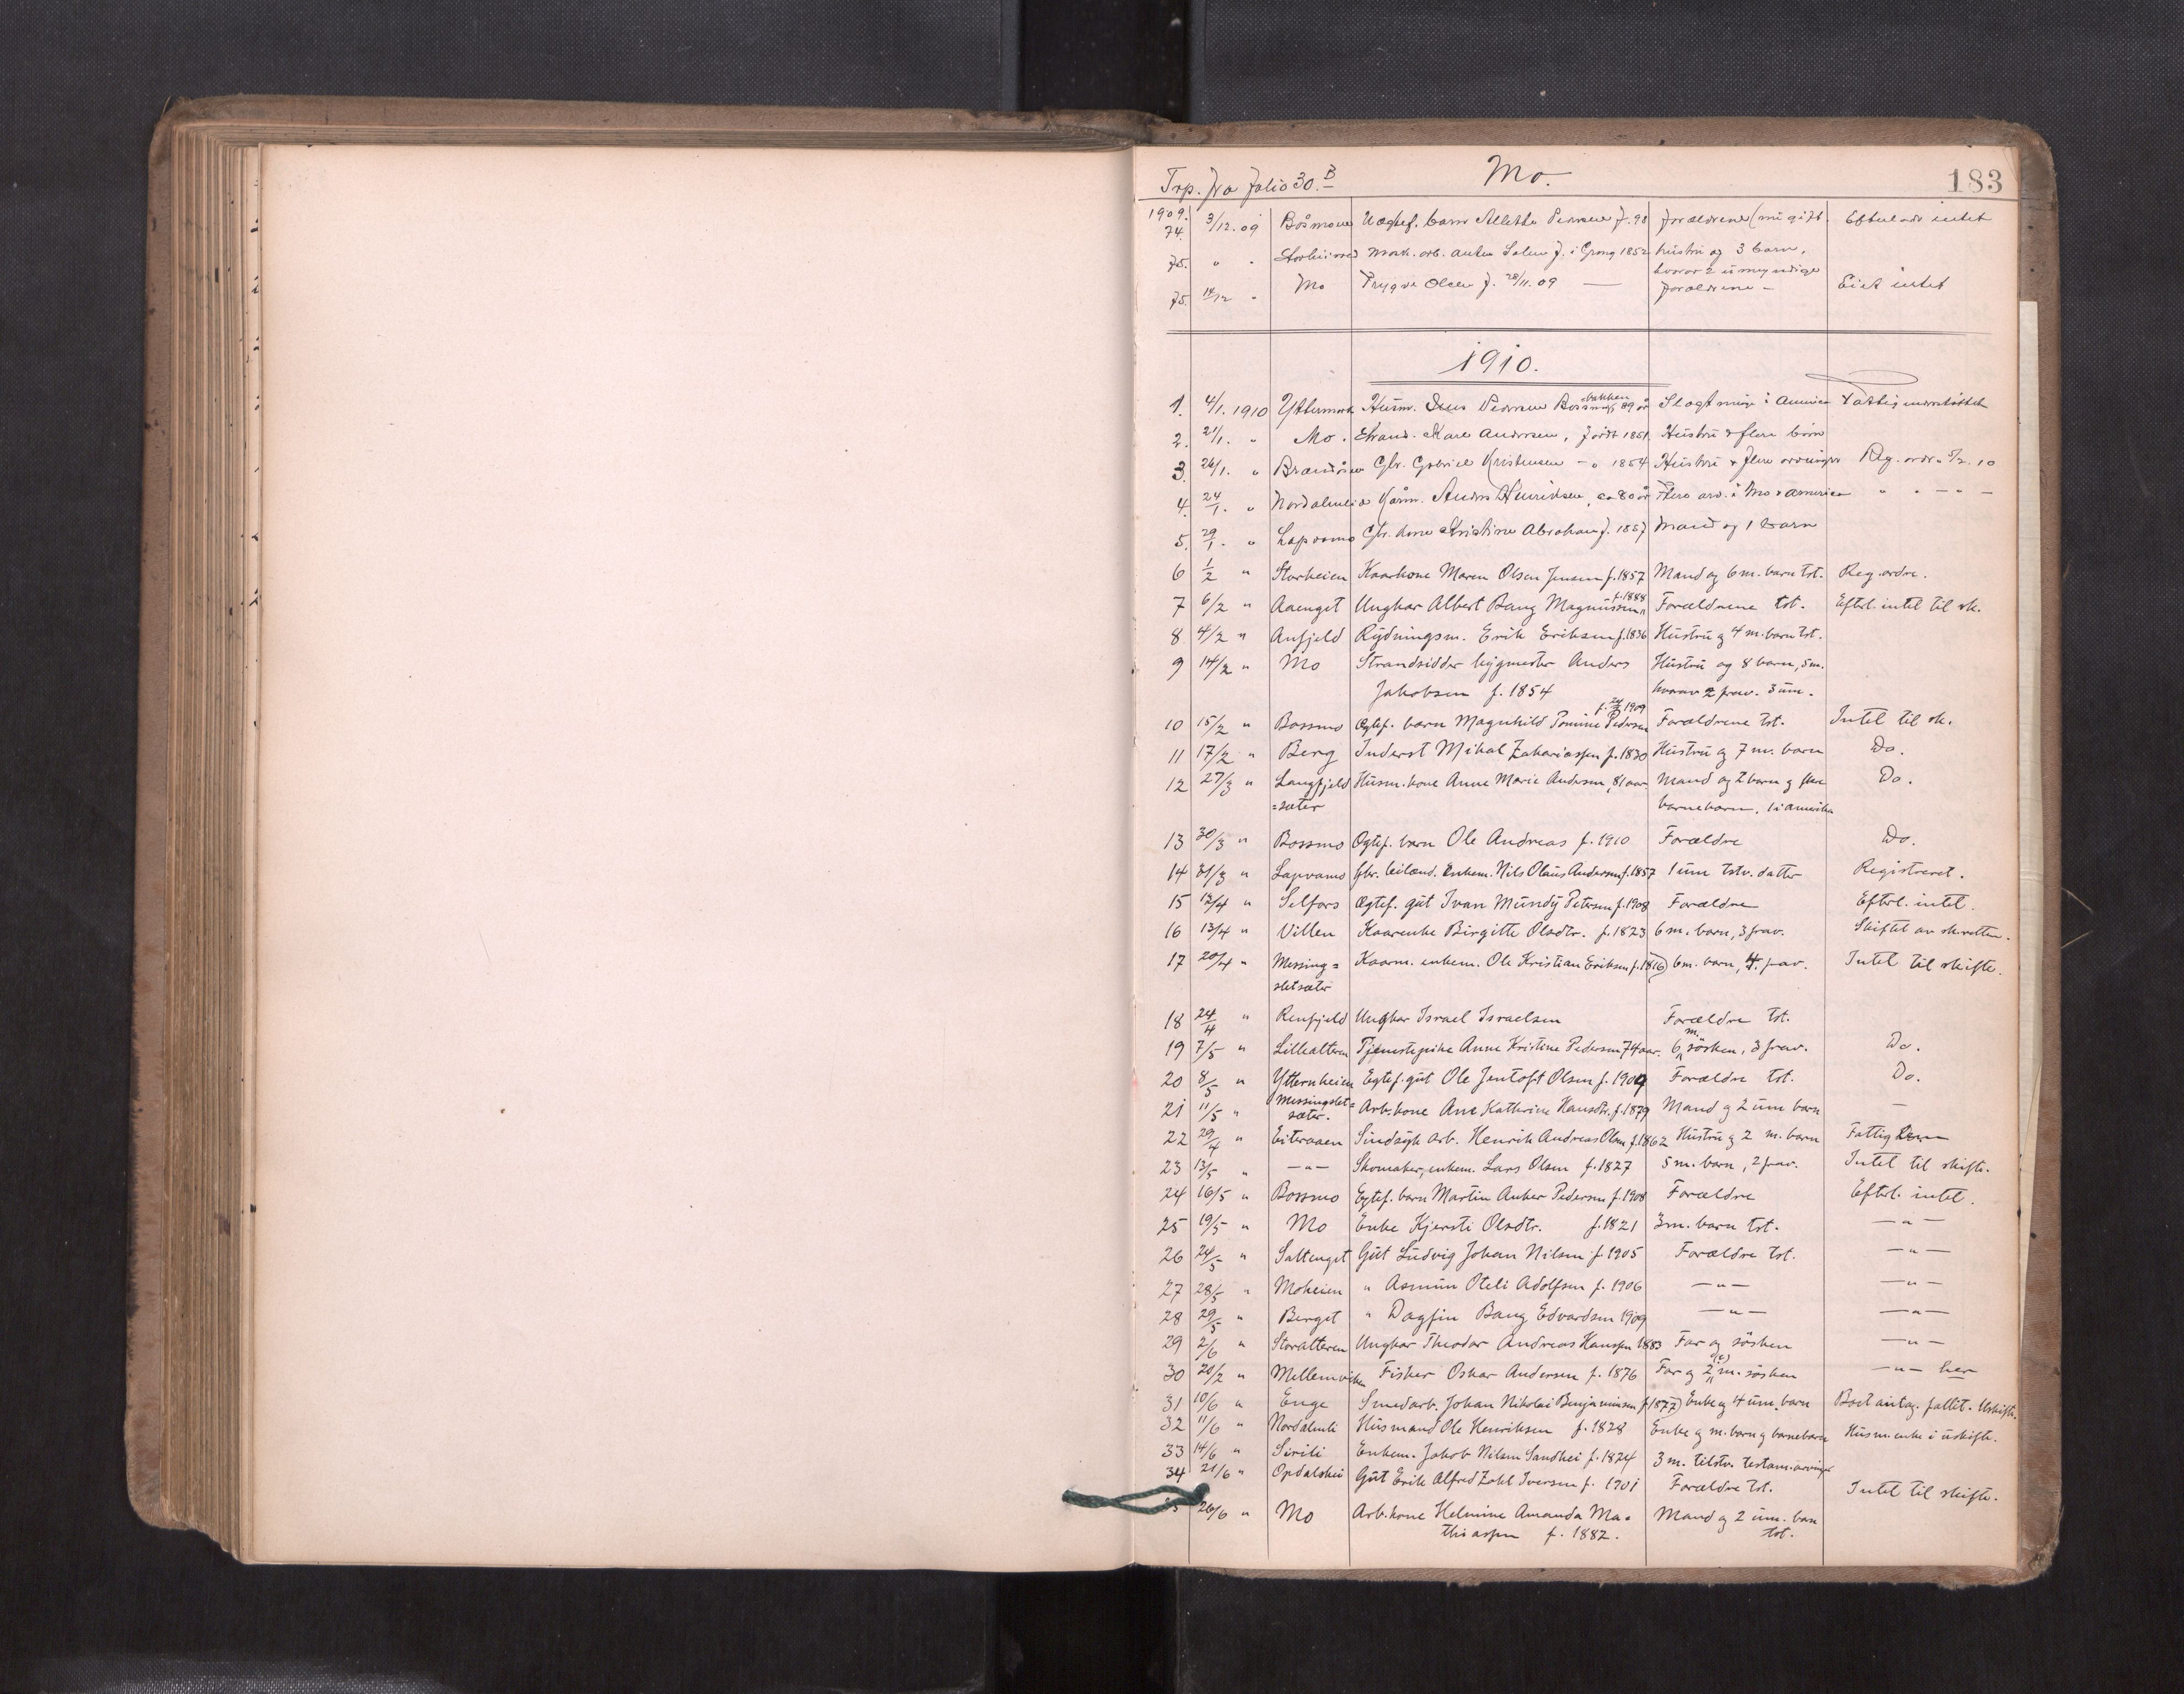 Trp. fra folio 30.B Mo. 183
1909.
74. 3/12. 09 Bosmoen Uægtef. barn Alletta Pedersen f. 98 forældrene (nu gift. Efterlader intet
75. " " Mosk. arb. Anton f. i Grong 1852 hustru og 3 barn,
hvorav 2 umyndige
75. 14/12 " Mo Trygve Olsen f. 28/11. 09 — forældrene - Eiet intet
1910.
1. 4/1. 1910 Yttermoen Husm. Pedersen 89 år Slegtninge i America Fattigunderstöttet
2. 21/1. " Mo. Strand. Andersen, födt 1851. Hustru & flere börn
3. 26/1. " Gbr. Gabriel Kristensen - " 1854 Hustru & flere arvinger Reg. ordr. 5/2. 10
4. 24/1. " Nordalenlia Kårm. Anders Henriksen, ca 80 år Flere arv. i Mo & America " " — " —
5. 29/1. " Lapvamo Gbr. kone Kristine Abraham f. 1857 Mand og 1 barn
6 1/2 " Storheien Kaarkone Maren Olsen Jensen f. 1857 Mand og 6 m. barn tst. Reg. ordre.
7 6/2 " Aaenget Ungkar Albert Bang Magnussen f. 1888 Forældrene tst. Efterl. intet til sk.
8 4/2 " Anfjeld Rydningsm. Erik Eriksen f. 1836 Hustru og 4 m. barn tst.
9 14/2 " Mo Strandsidder bygmester Anders Hustru og 8 barn, 5 m.
Jakobsen f. 1854 hvorav 2 frav. 3 um.
10 15/2 " Bossmo Ægtef. barn Magnhild Pedersen 1909 Forældrene tst. Intet til sk.
11 17/2 " Berg Inderst Mikal Zakariassen f. 1830 Hustru og 7 m. barn Do.
12 27/3 " Langfjeld Husm. kone Anne Marie Andersen, 81 aar Mand og 2 barn og flere Do.
=sæter barnebarn. 1 i Amerika
13 30/3 " Bossmo Ægtef. barn Ole Andreas f. 1910 Forældre Do.
14 31/3 " Lapvamo Gbr. leilænd. Enkem. Nils Olaus Andersen f. 1857 1 um tstv. datter Registreret.
15 12/4 " Selfors Ægtef. gut Ivan Mundy Petersen f. 1908 Forældre Efterl. intet.
16 13/4 " Villen Kaarenke Birgitte Olsdtr. f. 1823 6 m. barn, 3 frav. Skiftet av skretten.
17 20/4 " Messing= Kaarm. enkem. Ole Kristian Eriksen f. 1816) 6 m. barn, 4. frav. Intet til skifte.
sletsæter
18 24/4 " Renfjeld Ungkar Israel Israelsen Forældre tst.
19 7/5 " Lillealteren Tjenestepike Anne Kristine Pedersen 74 aar. 6 m. søsken, 3 frav. Do.
20 8/5 " Ytternheien Egtef. gut Ole Jentoft Olsen f. 1909 Forældre tst. Do.
21 11/5 " Messingslet=sæter. Arb. kone Ane Kathrine Hansdtr. f. 1879 Mand og 2 um barn —
22 29/4 " Eiteraaen Sindsyk arb. Henrik Andreas Olsen f. 1862 Hustru og 2 m. barn Fattiglem
23 13/5 " —"— Skomaker, enkem. Lars Olsen f. 1827 5 m. barn, 2 frav. Intet til skifte.
24 16/5 " Bossmo Egtef. barn Martin Anker Pedersen f. 1908 Forældre Efterl. intet.
25 19/5 " Mo Enke Kjersti Olsdtr. f. 1821 3 m. barn tst. —"—
26 24/5 " Saltenget Gut Ludvig Johan Nilsen f. 1905 Forældre tst. —"—
27 28/5 " Moheien " Asmun Oteli Adolfsen f. 1906 —"— —"—
28 29/5 " Berget " Dagfin Bang Edvardsen 1909 —"— —"—
29 2/6 " Storalteren Ungkar Theodor Andreas Hanssen 1883 Far og søsken —"—
30 20/2 " Mellemviken Fisker Oskar Andersen f. 1876 Far og 2 m. søsken —"— her
31 10/6 " Enge Smedarb. Johan Nikolai Benjaminsen f. 1877) Enke og 4 um. barn Boet antag. fallit. Uskifte.
32 11/6 " Nordalenli Husmand Ole Henriksen f. 1828 Enke og m. barn og barnebarn Husm. enke i uskifte.
33 14/6 " Sirili Enkem. Jakob Nilsen Sandhei f. 1824 3 m. tilstv. testam. arvinger
34 21/6 " Opdalshei Gut Erik Alfred Zahl Iversen f. 1901 Forældre tst. Intet til skifte.
35 26/6 " Mo Arb. kone Helmine Amanda Ma= Mand og 2 um. barn
thiassen f. 1882. tst.